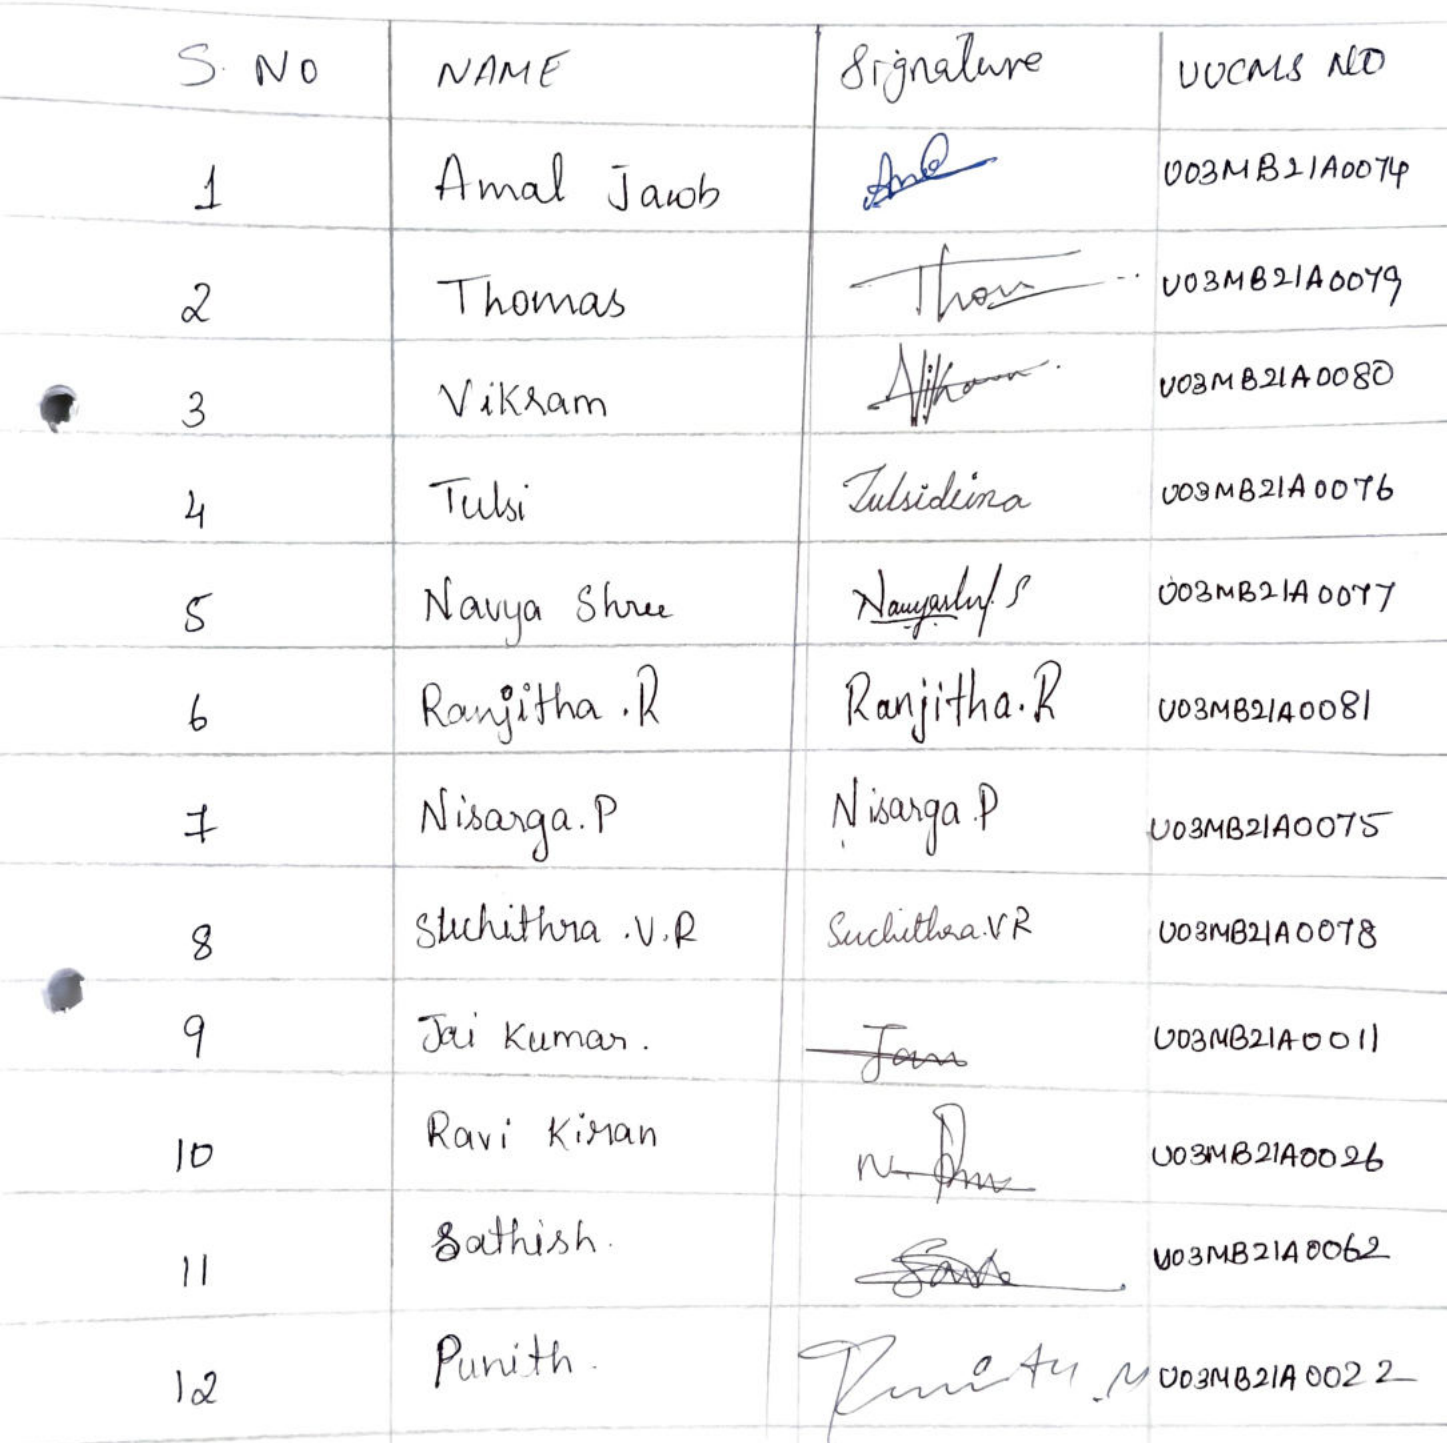 S. NO NAME Signature UUCMS NO
1 Amal Jacob U03MB21A0074
2 Thomas Thom U03MB21A0079
3 Vikram U03MB21A0080
4 Tulsi Tulsideina U03MB21A0076
5 Navya Shree U03MB21A0077
6 Ranjitha .R Ranjitha.R U03MB21A0081
7 Nisarga.P Nisarga.P U03MB21A0075
8 Suchithra .V.R Suchithra.VR U03MB21A0078
9 Jai Kumar. U03MB21A0011
10 Ravi Kiran U03MB21A0026
11 Sathish. U03MB21A0062
12 Punith. Punith.M U03MB21A0022